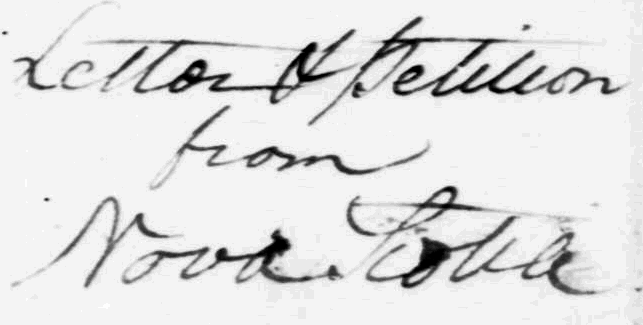 Letter & Petition
from
Nova Scotia